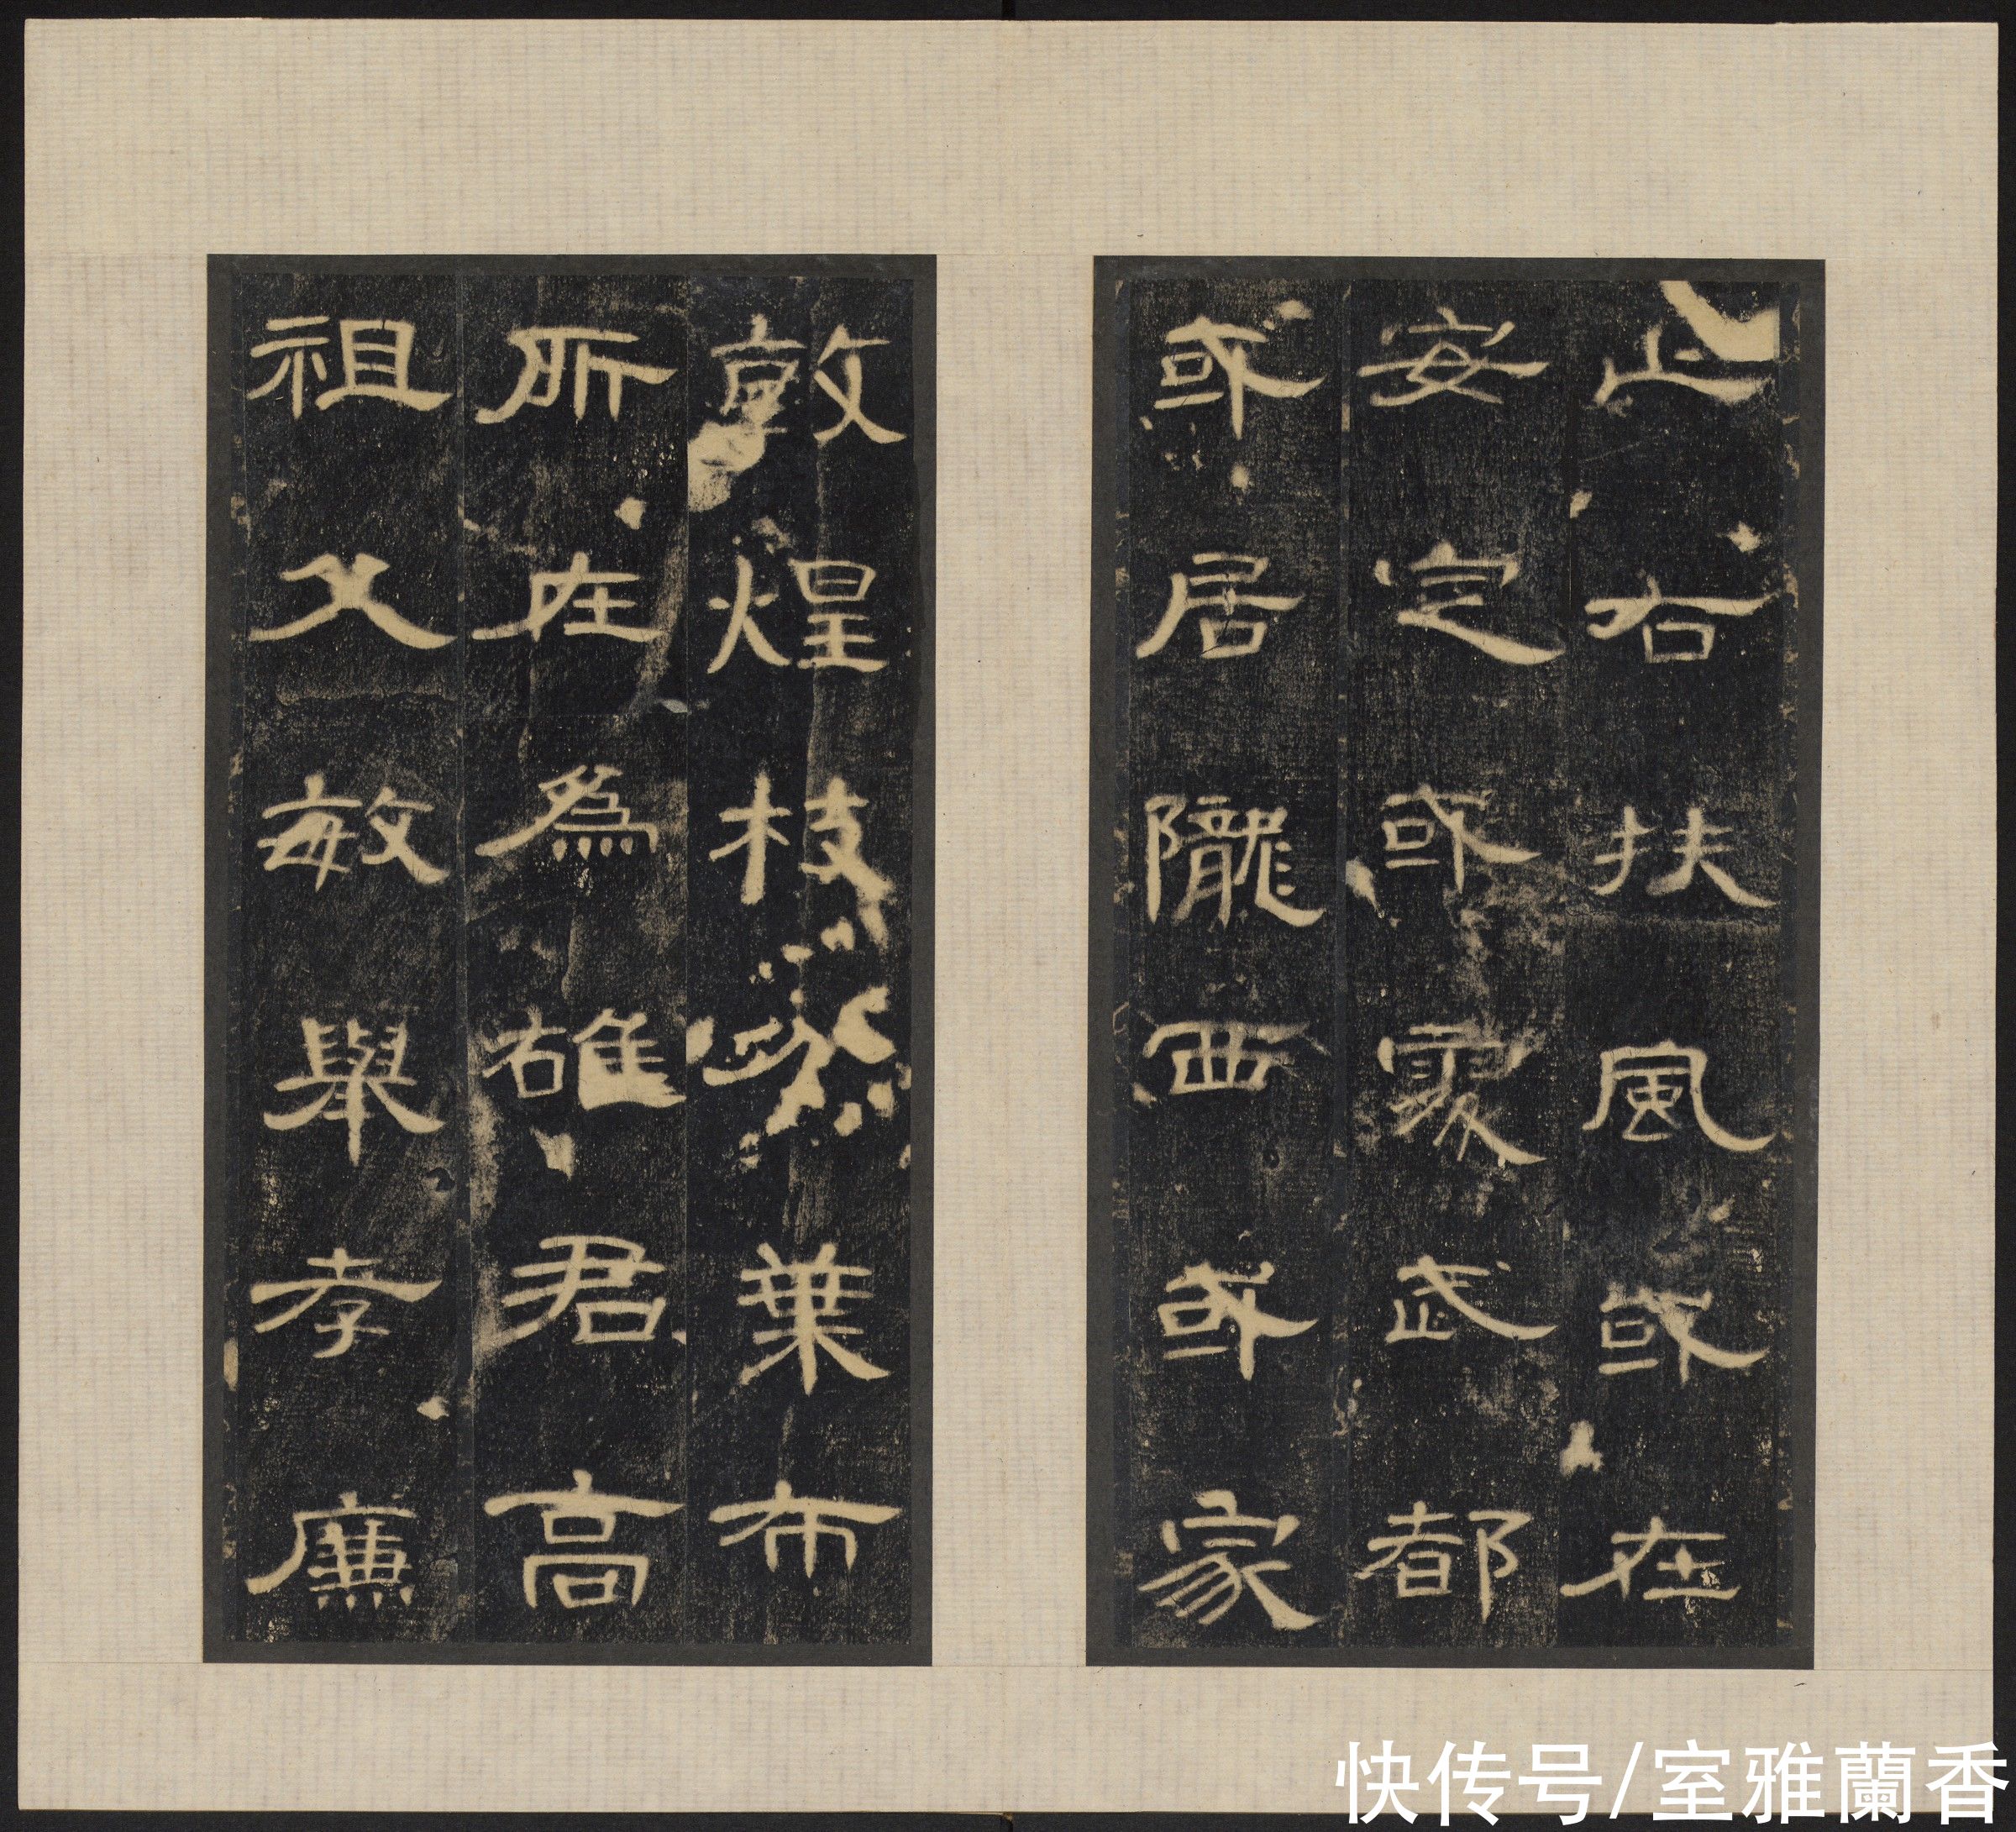 止右扶風或在
安定或處武都
或居隴西或家
敦煌枝分葉布
所在爲雄君高
祖父敏舉孝廉
快传号/室雅蘭香